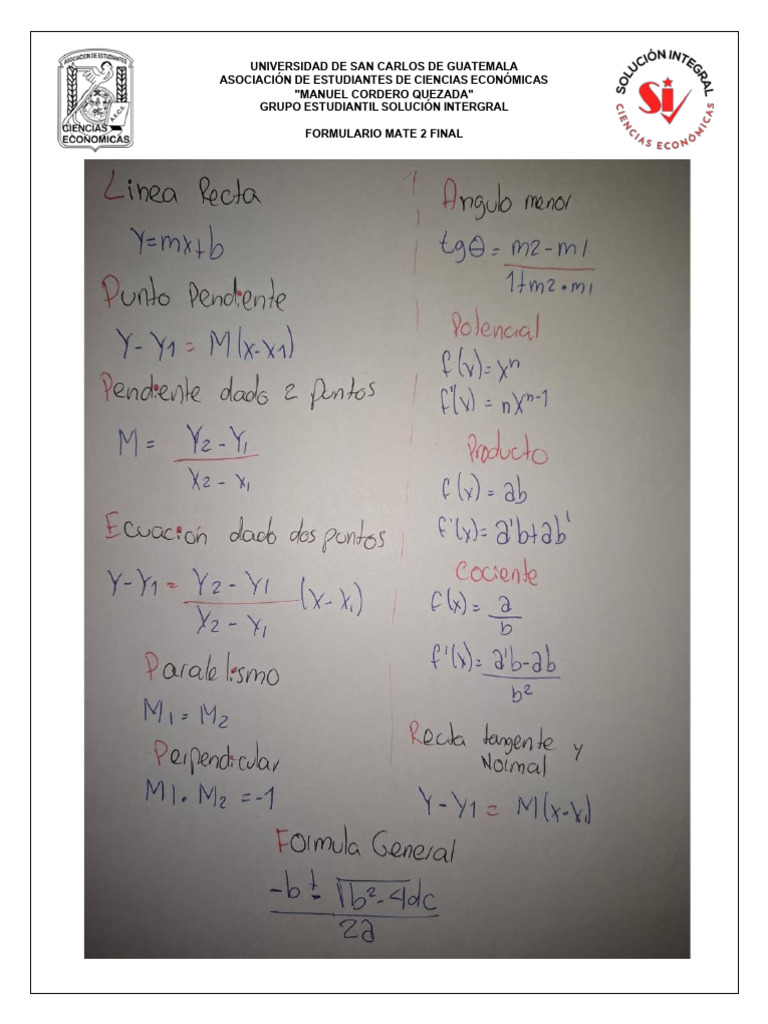 UNIVERSIDAD DE SAN CARLOS DE GUATEMALA
ASOCIACIÓN DE ESTUDIANTES DE CIENCIAS ECONÓMICAS
"MANUEL CORDERO QUEZADA"
GRUPO ESTUDIANTIL SOLUCIÓN INTERGRAL
FORMULARIO MATE 2 FINAL
ASOCIACION DE ESTUDIANTES
A.E.C.E.
CIENCIAS
ECONOMICAS
SOLUCIÓN INTEGRAL
Si
CIENCIAS ECONÓMICAS
Linea Recta
y=mx+b
Punto Pendiente
Y-Y1 = M(x-x1)
Pendiente dado 2 puntos
M = Y2-Y1
x2-x1
Ecuación dado dos puntos
Y-Y1 = Y2-Y1 (x-x1)
x2-x1
Paralelismo
M1=M2
Perpendicular
M1.M2=-1
Angulo menor
tgθ = m2-m1
1+m2•m1
Potencial
f(x)=xⁿ
f'(x) = nxⁿ⁻¹
Producto
f(x)=ab
f'(x)=a'b+ab'
Cociente
f(x)= a
b
f'(x)= a'b-ab
b²
Recta tangente y
Normal
Y-Y1 = M(x-x1)
Formula General
-b ± √b²-4ac
2a